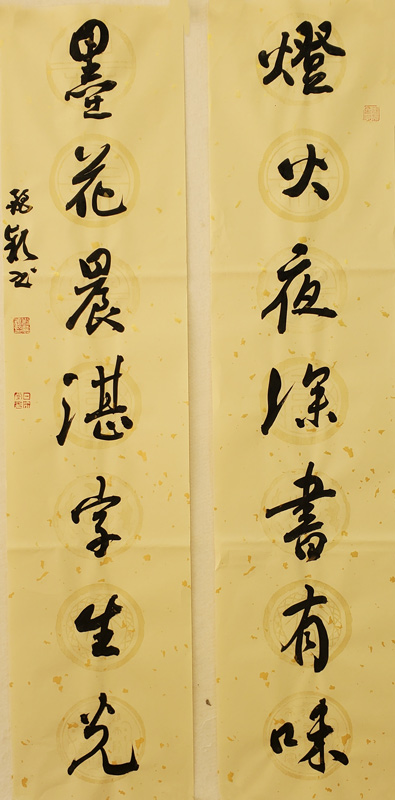 燈火夜深書有味
墨花晨湛字生光